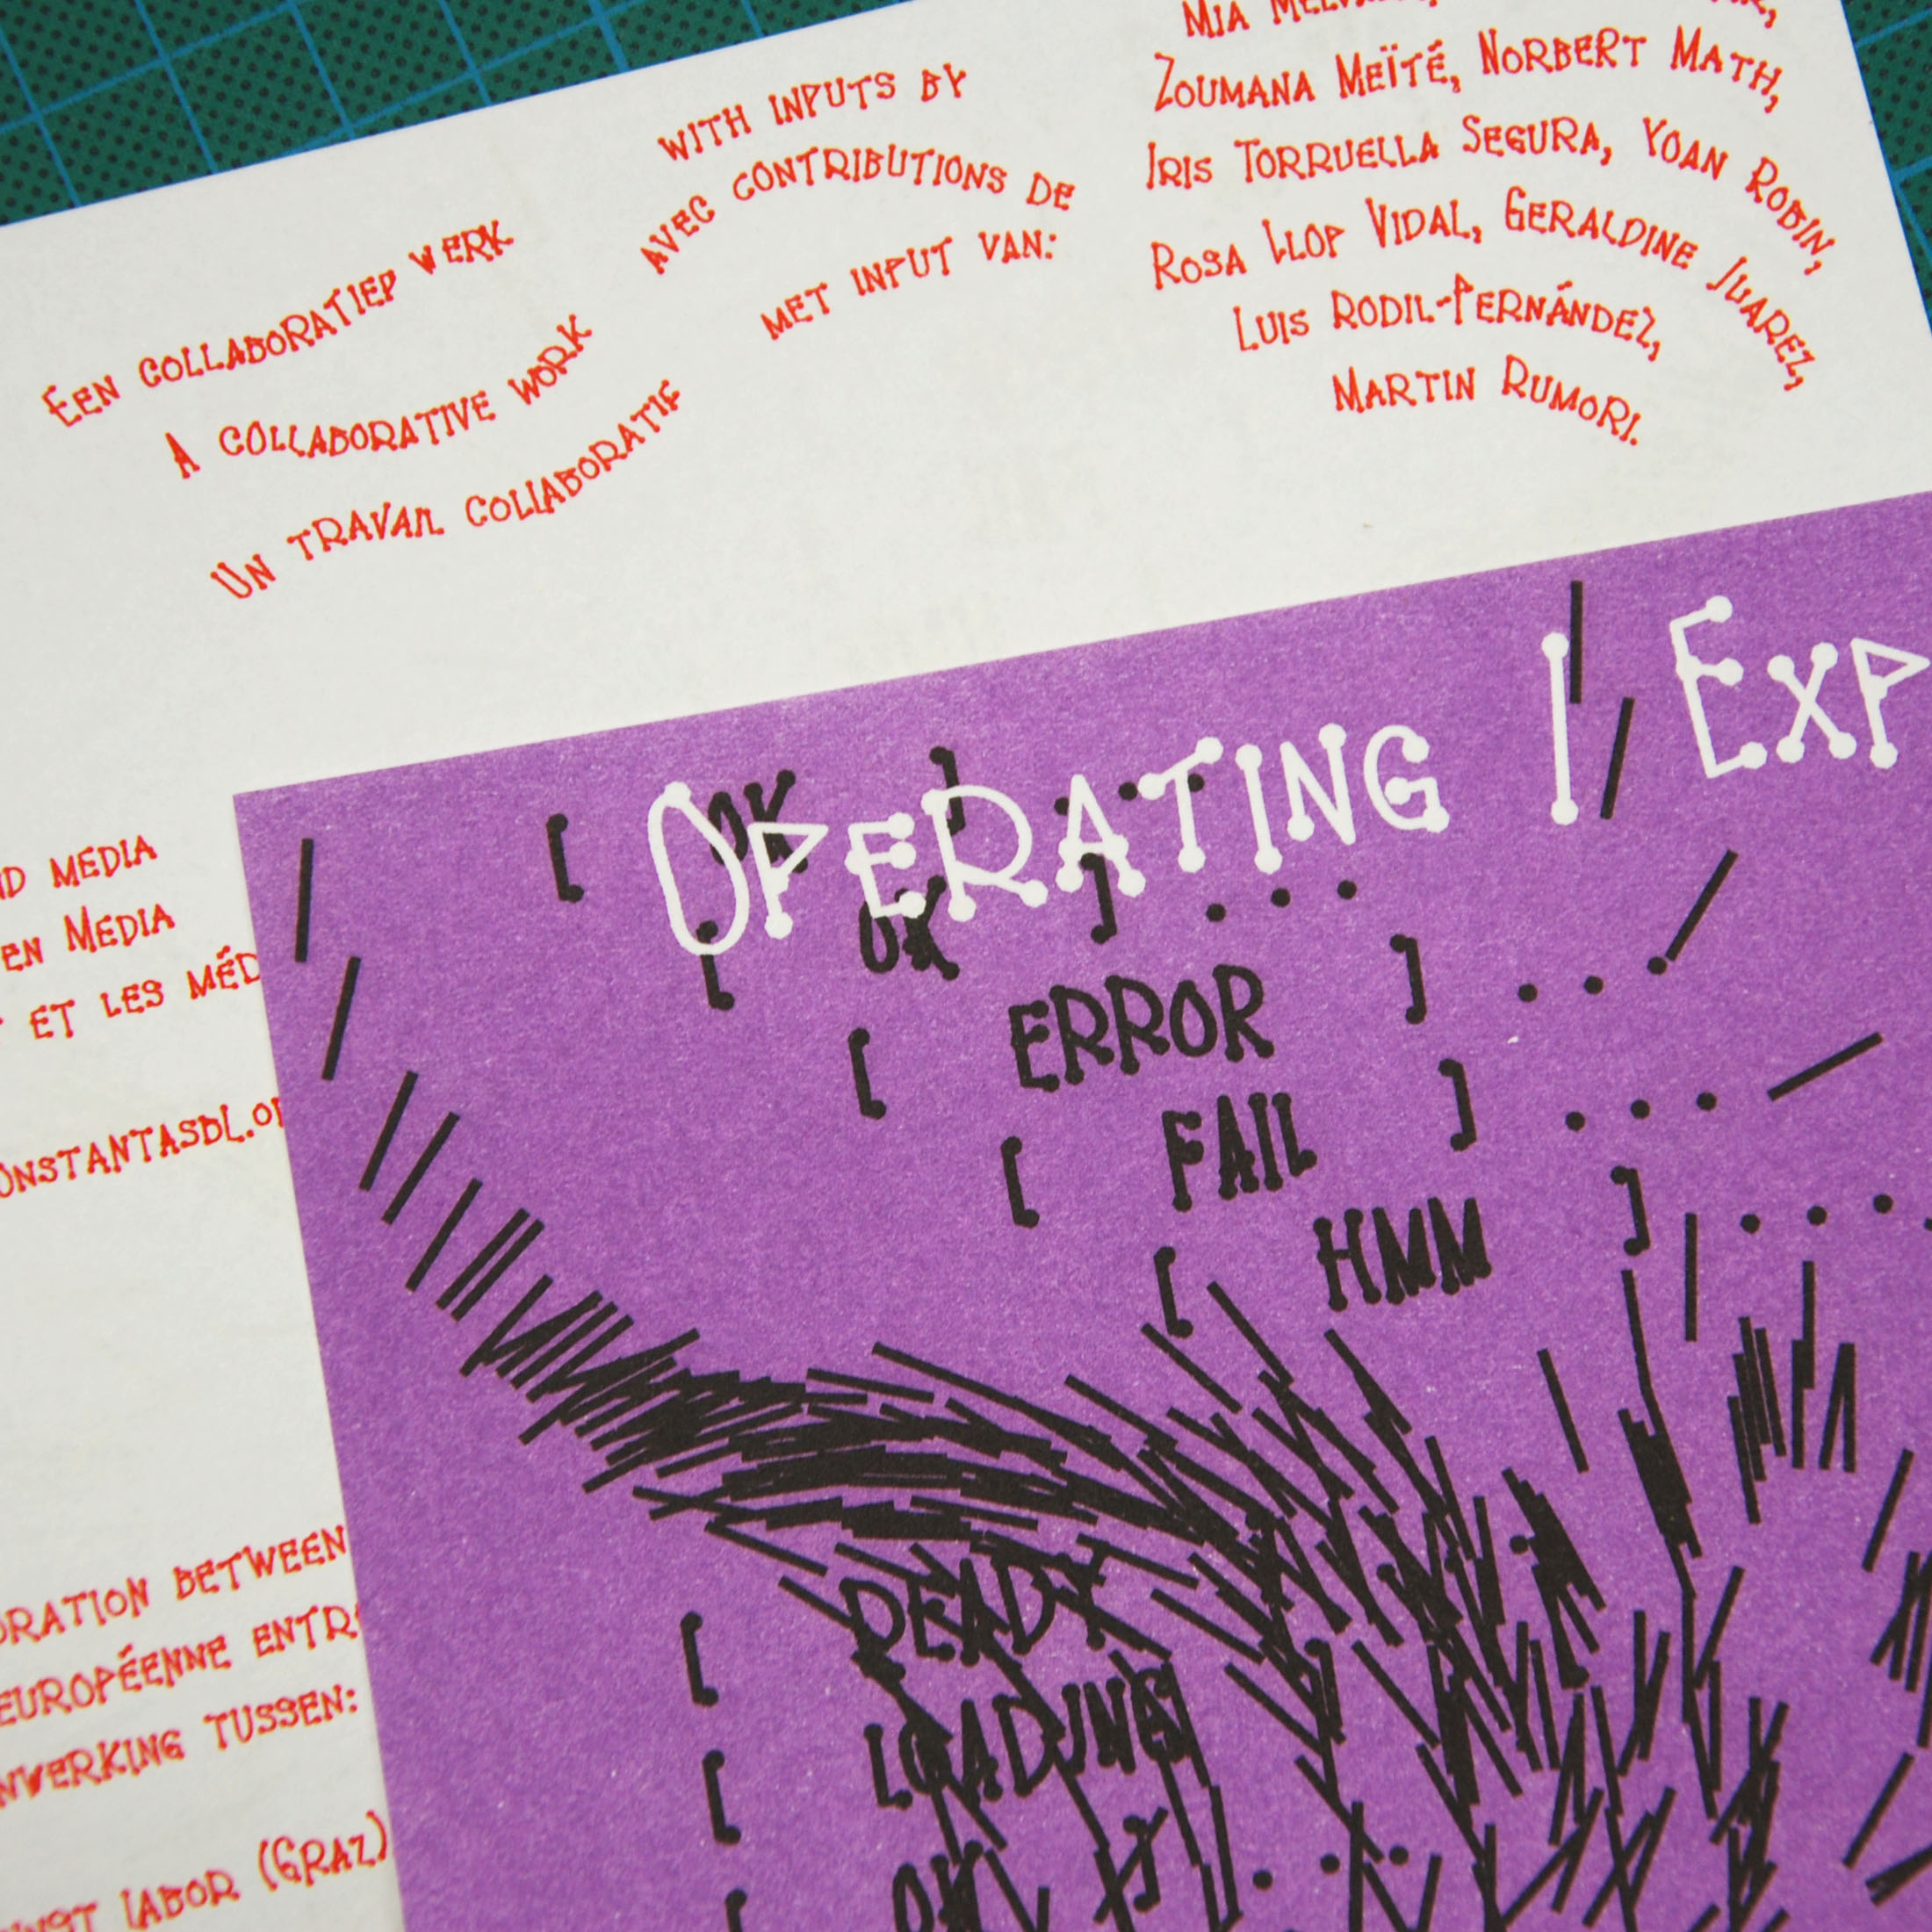 Een collaboratief werk
A collaborative work
Un travail collaboratif
with inputs by
avec contributions de
met input van:
Mia
Zoumana Meïté, Norbert Math,
Iris Torruella Segura, Yoan Robin,
Rosa Llop Vidal, Geraldine Juarez,
Luis Rodil-Fernández,
Martin Rumori.
media
en Media
et les méd
onstantasbl.or
oration between
européenne entr
nwerking tussen:
labor (Graz)
Operating | Exp
[ OK ] . . .
[ OK ] . . .
[ ERROR ] . . .
[ FAIL ] . . .
[ HMM ] . . .
[ READY
[ LOADING
[ OK ] . . .